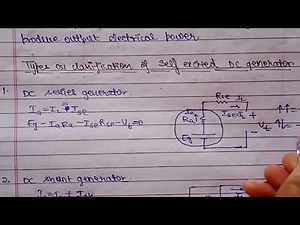 produce output electrical power
Types or classification of self excited DC generator
1. DC series generator
Ia = IL = Ise
Eg - IaRa - IseRse - Vt = 0
Rse IL
Ia
Ra
Ise
IL
+
Vt
-
Eg
2. DC shunt generator
Ia = IL + Ish